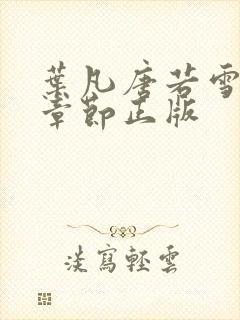 葉凡唐若雪
章節正版
淡寫輕雲